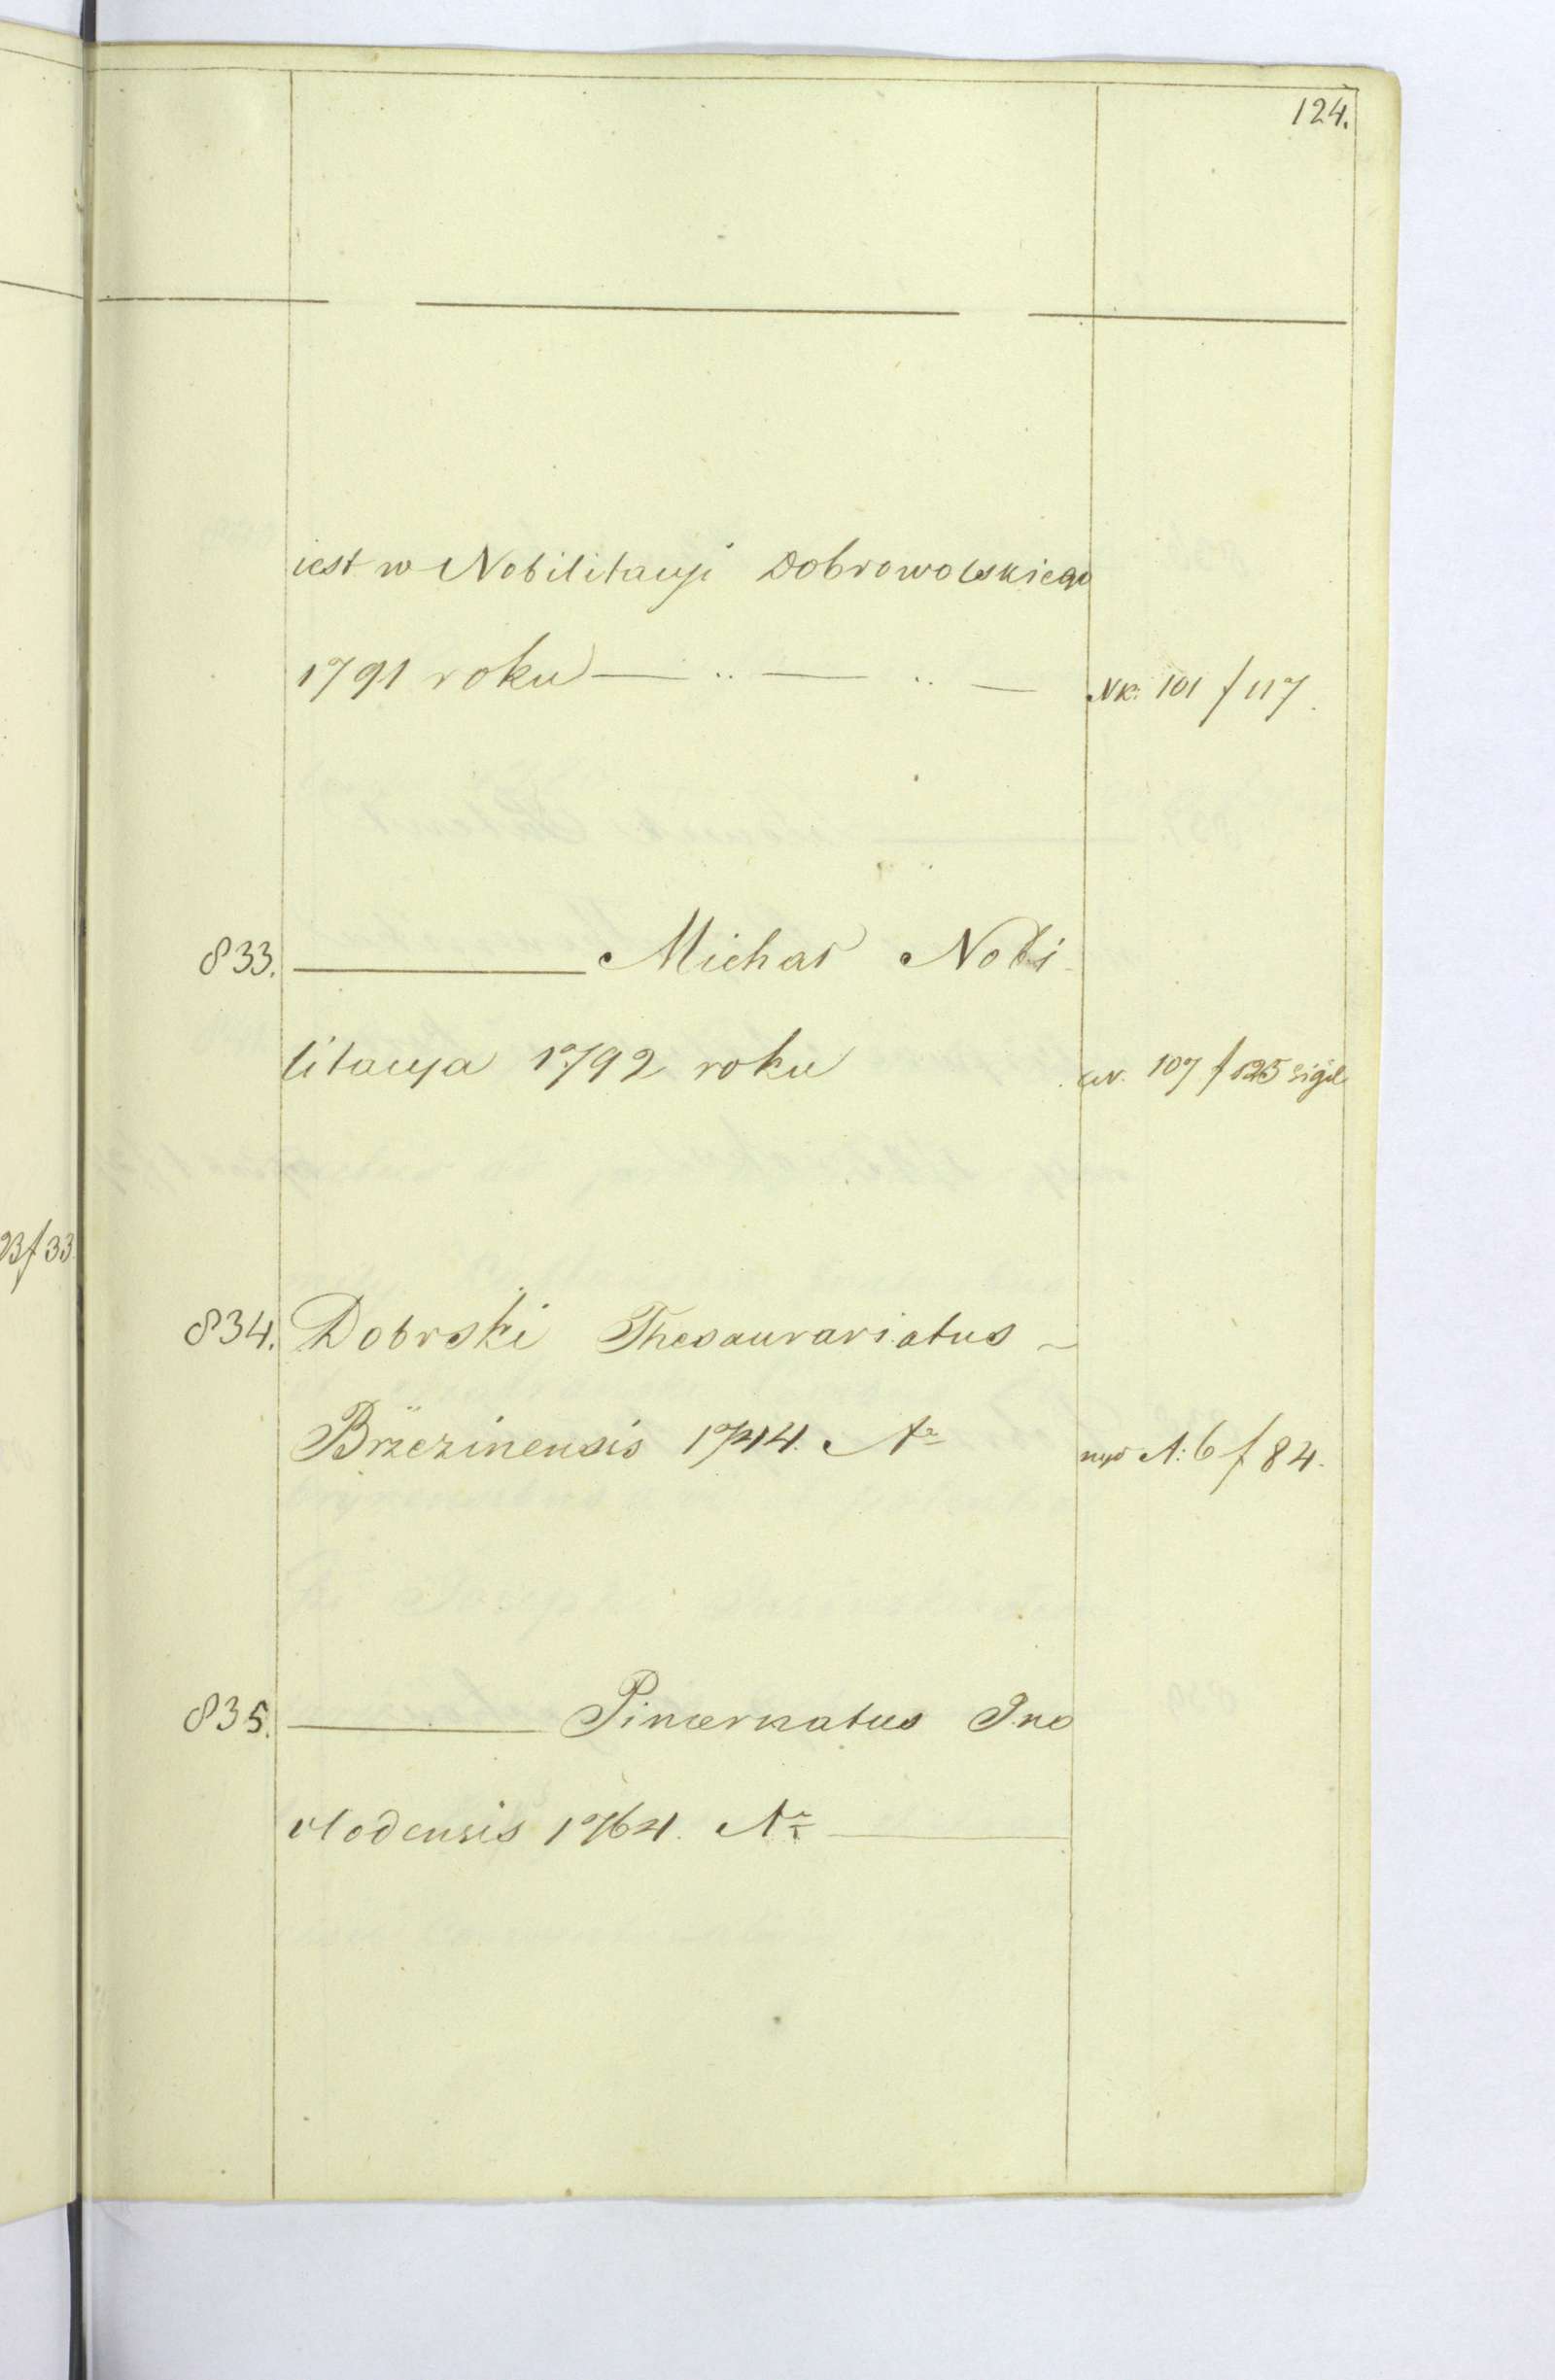 124.
iest w Nobilitacyi Dobrowolskiego
1791 roku — .. — .. — NK: 101 f 117.
833. ——— Michał Nobi
litacya 1792 roku 107 f 125 sigil
834. Dobrski Thesaurariatus -
Brzezinensis 1744. Ar A: 6 f 84.
835. ——— Pincernatus Ino
vlodensis 1764. Ar ———
23 f 33.